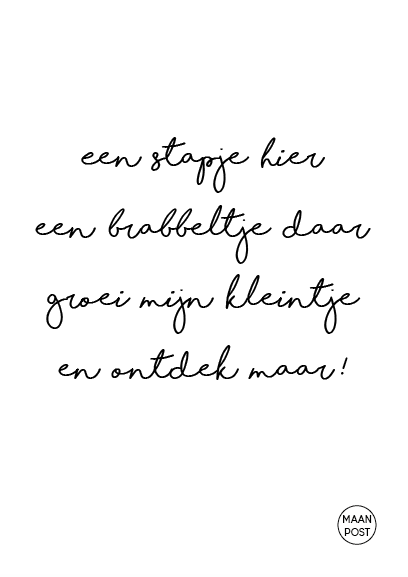 een stapje hier
een brabbeltje daar
groei mijn kleintje
en ontdek maar!
MAAN
POST